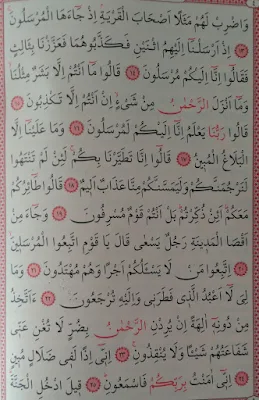 وَاضْرِبْ لَهُمْ مَثَلًا اَصْحَابَ الْقَرْيَةِ اِذْ جَٓاءَهَا الْمُرْسَلُونَۚ
﴿١٣﴾ اِذْ اَرْسَلْنَٓا اِلَيْهِمُ اثْنَيْنِ فَكَذَّبُوهُمَا فَعَزَّزْنَا بِثَالِثٍ
فَقَالُٓوا اِنَّٓا اِلَيْكُمْ مُرْسَلُونَ ﴿١٤﴾ قَالُوا مَٓا اَنْتُمْ اِلَّا بَشَرٌ مِثْلُنَاۙ
وَمَٓا اَنْزَلَ الرَّحْمٰنُ مِنْ شَيْءٍۙ اِنْ اَنْتُمْ اِلَّا تَكْذِبُونَ ﴿١٥﴾
قَالُوا رَبُّنَا يَعْلَمُ اِنَّٓا اِلَيْكُمْ لَمُرْسَلُونَ ﴿١٦﴾ وَمَا عَلَيْنَٓا اِلَّا
الْبَلَاغُ الْمُبِينُ ﴿١٧﴾ قَالُٓوا اِنَّا تَطَيَّرْنَا بِكُمْۚ لَئِنْ لَمْ تَنْتَهُوا
لَنَرْجُمَنَّكُمْ وَلَيَمَسَّنَّكُمْ مِنَّا عَذَابٌ اَلِيمٌ ﴿١٨﴾ قَالُوا طَٓائِرُكُمْ
مَعَكُمْۜ اَئِنْ ذُكِّرْتُمْۜ بَلْ اَنْتُمْ قَوْمٌ مُسْرِفُونَ ﴿١٩﴾ وَجَٓاءَ مِنْ
اَقْصَا الْمَدِينَةِ رَجُلٌ يَسْعٰى قَالَ يَا قَوْمِ اتَّبِعُوا الْمُرْسَلِينَۙ
﴿٢٠﴾ اِتَّبِعُوا مَنْ لَا يَسْـَٔلُكُمْ اَجْرًا وَهُمْ مُهْتَدُونَ ﴿٢١﴾ وَمَا
لِيَ لَٓا اَعْبُدُ الَّذِي فَطَرَنِي وَاِلَيْهِ تُرْجَعُونَ ﴿٢٢﴾ ءَاَتَّخِذُ
مِنْ دُونِهٓ اٰلِهَةً اِنْ يُرِدْنِ الرَّحْمٰنُ بِضُرٍّ لَا تُغْنِ عَنِّي
شَفَاعَتُهُمْ شَيْـًٔا وَلَا يُنْقِذُونِۚ ﴿٢٣﴾ اِنِّٓي اِذًا لَفِي ضَلَالٍ مُبِينٍ
﴿٢٤﴾ اِنِّٓي اٰمَنْتُ بِرَبِّكُمْ فَاسْمَعُونِۜ ﴿٢٥﴾ قِيلَ ادْخُلِ الْجَنَّةَۜ